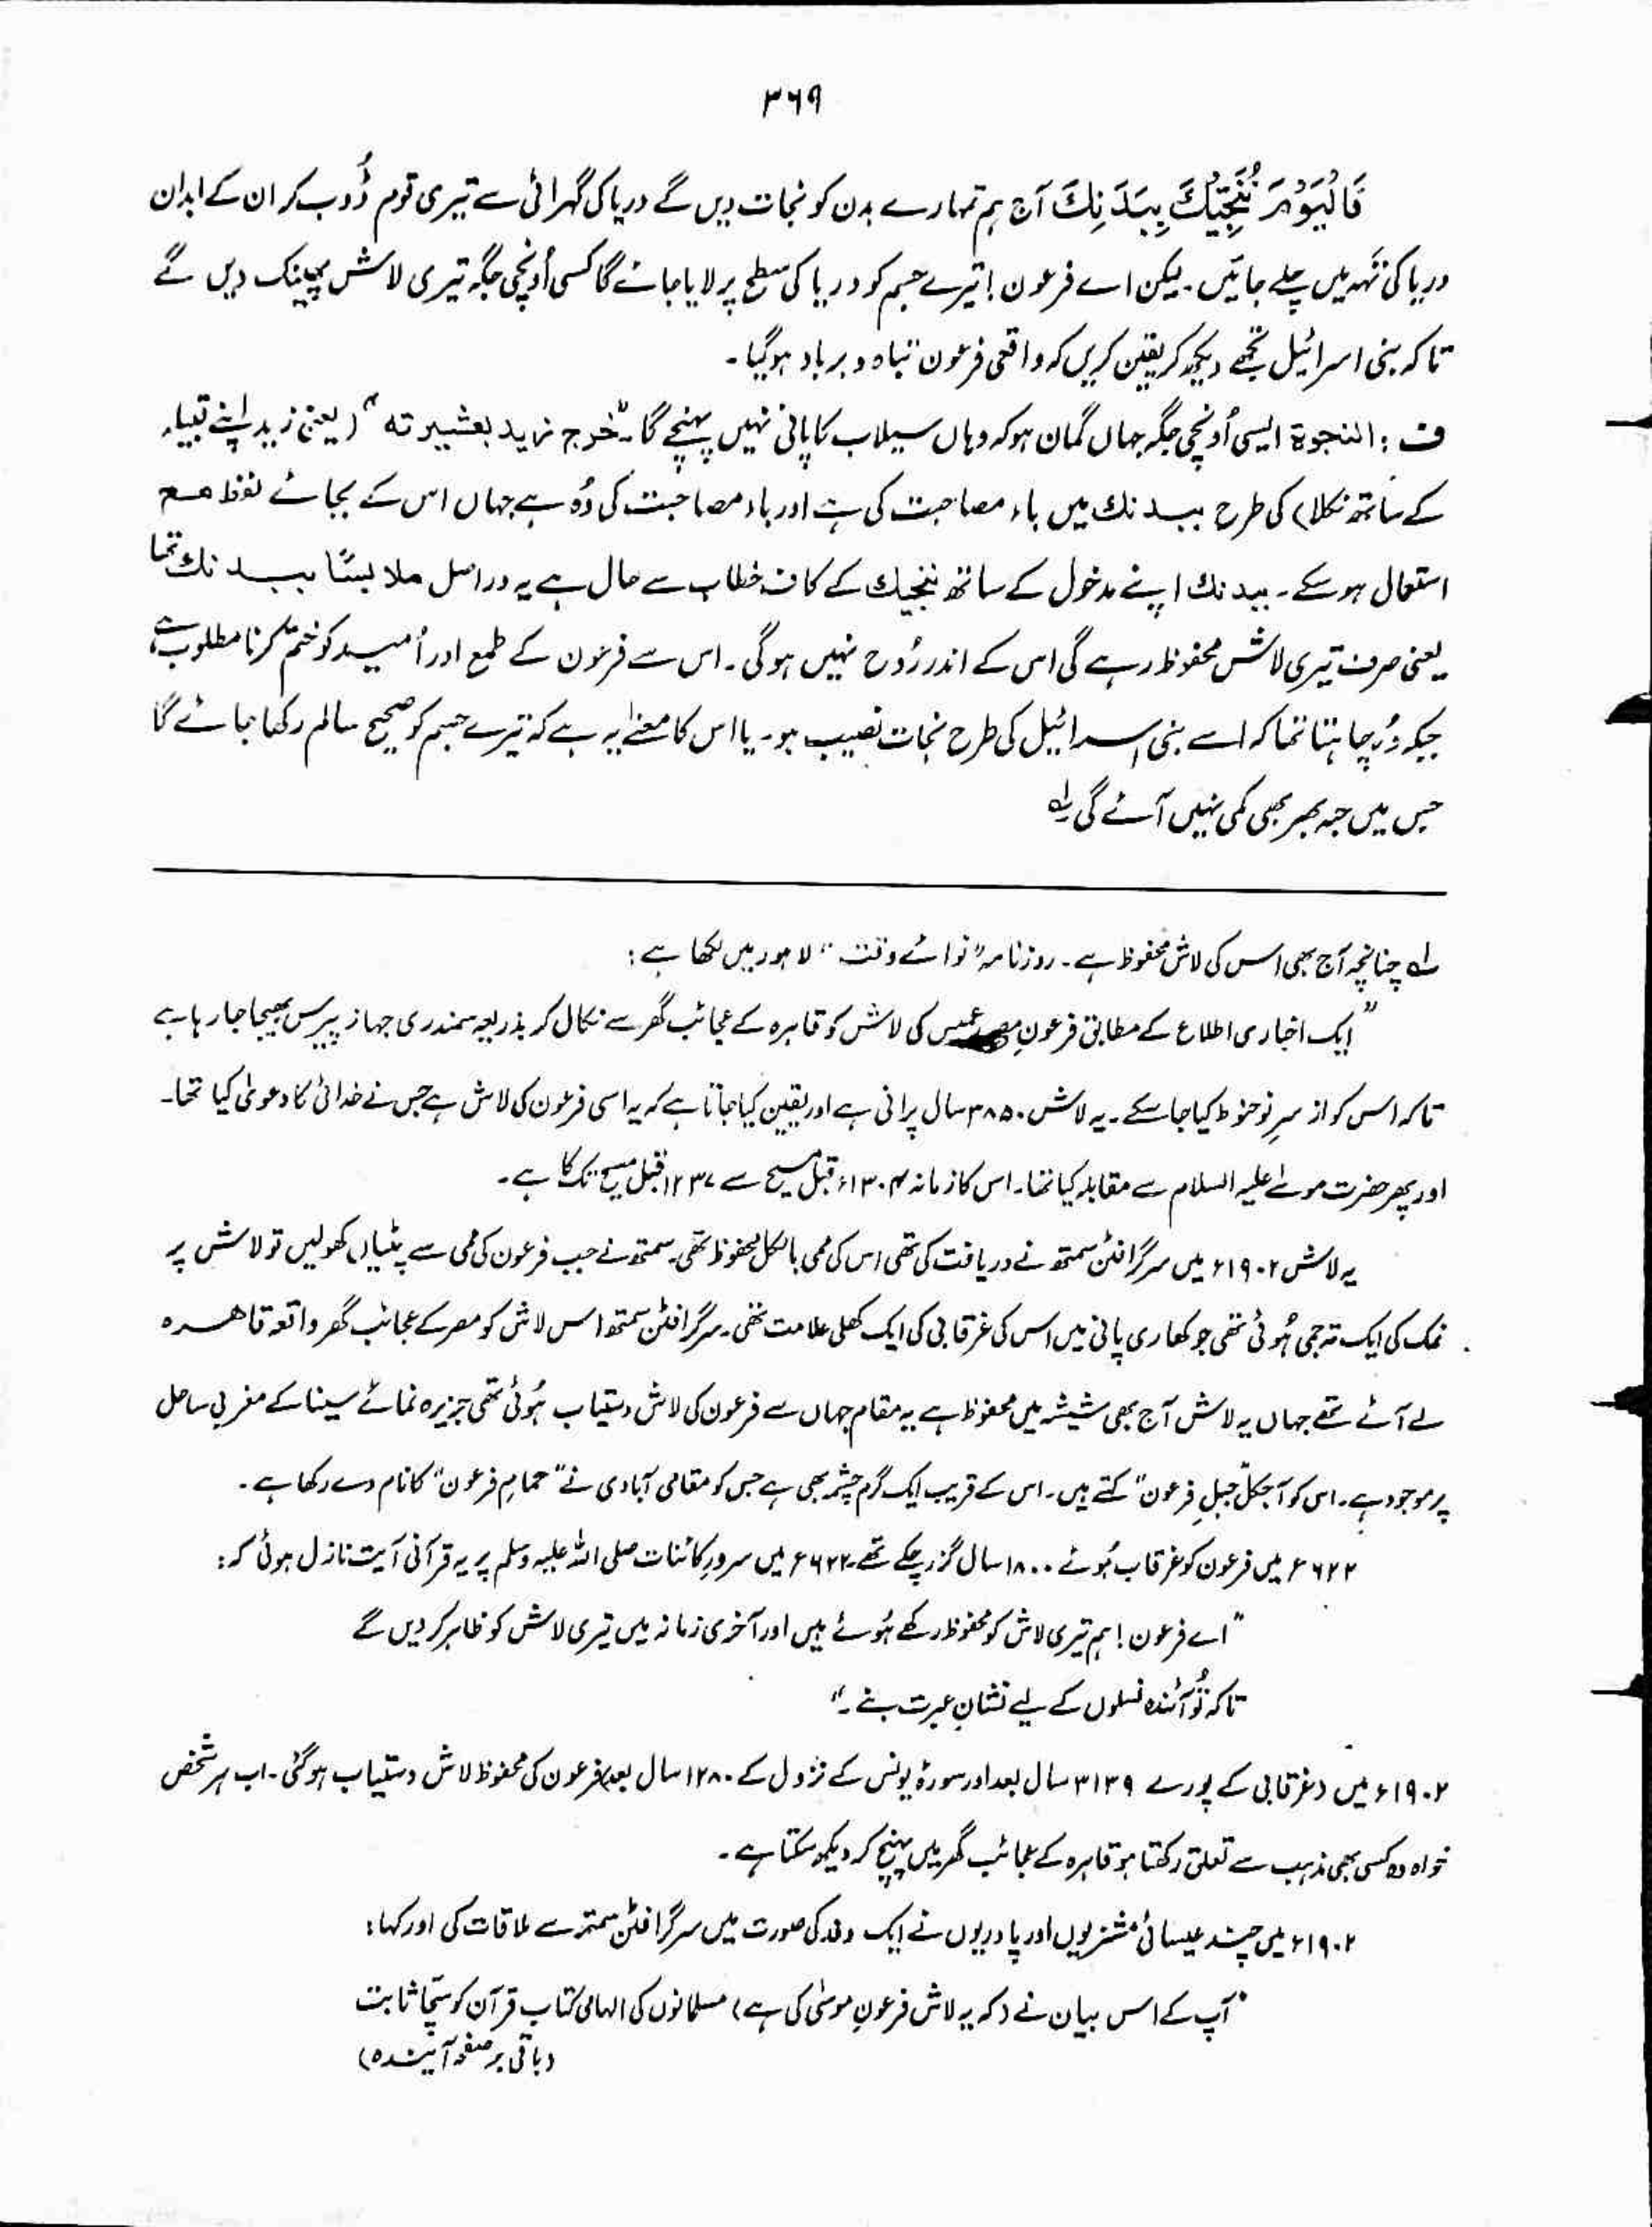 ۳۶۹
فَالْيَوْمَ نُنَجِّيْكَ بِبَدَنِكَ آج ہم تمہارے بدن کو نجات دیں گے دریا کی گہرائی سے تیری قوم ڈُوب کر ان کے ابدان
دریا کی تَہہ میں چلے جائیں۔ لیکن اے فرعون! تیرے جسم کو دریا کی سطح پر لایا جائے گا کسی اُونچی جگہ تیری لاش پھینک دیں گے
تاکہ بنی اسرائیل تجھے دیکھ کر یقین کریں کہ واقعی فرعون تباہ و برباد ہوگیا۔
ف : النجوۃ ایسی اُونچی جگہ جہاں گمان ہو کہ وہاں سیلاب کا پانی نہیں پہنچے گا۔ "خرج زید بعشیرتہ" (یعنی زید اپنے قبیلہ
کے ساتھ نکلا) کی طرح ببدنك میں باء مصاحبت کی ہے اور باء مصاحبت کی وُہ ہے جہاں اس کے بجائے لفظ مع
استعمال ہو سکے۔ ببدنك اپنے مدخول کے ساتھ ننجیك کے کاف خطاب سے حال ہے یہ دراصل ملابسًا ببدنك تھا
یعنی صرف تیری لاش محفوظ رہے گی اس کے اندر رُوح نہیں ہوگی۔ اس سے فرعون کے طمع اور اُمید کو ختم کرنا مطلوب ہے،
جبکہ وُہ چاہتا تھا کہ اسے بنی اسرائیل کی طرح نجات نصیب ہو۔ یا اس کا معنٰے یہ ہے کہ تیرے جسم کو صحیح سالم رکھا جائے گا
جس میں جبہ بھر بھی کمی نہیں آئے گی لہ
لہ چنانچہ آج بھی اس کی لاش محفوظ ہے۔ روزنامہ "نوائے وقت" لاہور میں لکھا ہے :
"ایک اخباری اطلاع کے مطابق فرعونِ مصر کی لاش کو قاہرہ کے عجائب گھر سے نکال کر بذریعہ سمندری جہاز پیرس بھیجا جا رہا ہے
تاکہ اس کو از سرِ نو حنوط کیا جا سکے۔ یہ لاش ۳۸۵۰ سال پرانی ہے اور یقین کیا جاتا ہے کہ یہ اسی فرعون کی لاش ہے جس نے خدائی کا دعوٰی کیا تھا۔
اور پھر حضرت موسٰے علیہ السلام سے مقابلہ کیا تھا۔ اس کا زمانہ ۱۳۰۴ء قبل مسیح سے ۱۲۳۷ قبل مسیح تک کا ہے۔
یہ لاش ۱۹۰۲ء میں سر گرافٹن سمتھ نے دریافت کی تھی اس کی ممی بالکل محفوظ تھی۔ سمتھ نے جب فرعون کی ممی سے پٹیاں کھولیں تو لاش پر
نمک کی ایک تہ جمی ہُوئی تھی جو کھاری پانی میں اس کی غرقابی کی ایک کھلی علامت تھی۔ سر گرافٹن سمتھ اس لاش کو مصر کے عجائب گھر واقعہ قاہرہ
لے آئے تھے جہاں یہ لاش آج بھی شیشہ میں محفوظ ہے یہ مقام جہاں سے فرعون کی لاش دستیاب ہُوئی تھی جزیرہ نمائے سینا کے مغربی ساحل
پر موجود ہے۔ اس کو آجکل "جبلِ فرعون" کہتے ہیں۔ اس کے قریب ایک گرم چشمہ بھی ہے جس کو مقامی آبادی نے "حمامِ فرعون" کا نام دے رکھا ہے۔
۶۲۲ء میں فرعون کو غرقاب ہُوئے ۱۸۰۰ سال گزر چکے تھے۔ ۶۲۲ء میں سرورِ کائنات صلی اللہ علیہ وسلم پر یہ قرآنی آیت نازل ہوئی کہ:
"اے فرعون! ہم تیری لاش کو محفوظ رکھے ہُوئے ہیں اور آخری زمانہ میں تیری لاش کو ظاہر کر دیں گے
تاکہ تُو آئندہ نسلوں کے لیے نشانِ عبرت بنے۔"
۱۹۰۲ء میں (غرقابی کے پورے ۳۱۳۹ سال بعد اور سورۂ یونس کے نزول کے ۱۲۸۰ سال بعد) فرعون کی محفوظ لاش دستیاب ہوگئی۔ اب ہر شخص
خواہ وہ کسی بھی مذہب سے تعلق رکھتا ہو قاہرہ کے عجائب گھر میں پہنچ کر دیکھ سکتا ہے۔
۱۹۰۲ء میں چند عیسائی مشنریوں اور پادریوں نے ایک وفد کی صورت میں سر گرافٹن سمتھ سے ملاقات کی اور کہا:
"آپ کے اس بیان نے (کہ یہ لاش فرعونِ موسٰی کی ہے) مسلمانوں کی الہامی کتاب قرآن کو سچّا ثابت
(باقی بر صفحہ آیندہ)